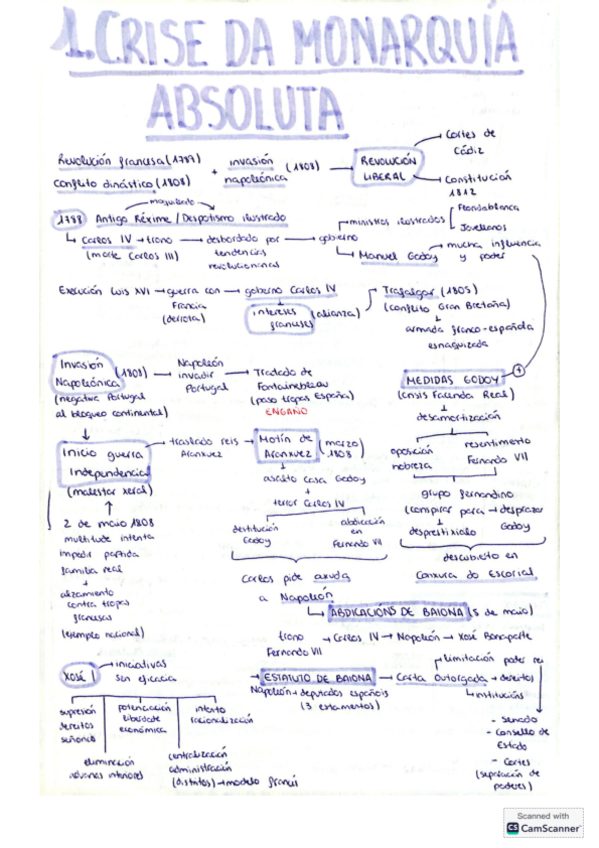 1. CRISE DA MONARQUÍA
ABSOLUTA
Revolución francesa (1789)
Conflito dinástico (1808)
+
invasión
napoleónica
(1808)
REVOLUCIÓN
LIBERAL
Cortes de
Cádiz
Constitución
1812
1788
Antigo Réxime / Despotismo ilustrado
Carlos IV → trono
(morte Carlos III)
desbordado por
tendencias
revolucionarias
goberno
ministros ilustrados
Floridablanca
Jovellanos
Manuel Godoy
mucha influencia
y poder
Execución Luis XVI → guerra con
Francia
(derrota)
goberno Carlos IV
intereses
franceses
(alianza)
Trafalgar (1805)
(conflito Gran Bretaña)
armada franco-española
Invasión
Napoleónica
(1808)
(negativa Portugal
al bloqueo continental)
Napoleón
invadir
Portugal
Tratado de
Fontainebleau
(paso tropas España)
ENGAÑO
+
MEDIDAS GODOY
(crisis Facenda Real)
desamortización
oposición
nobreza
resentimento
Fernando VII
grupo fernandino
(conspirar para → desprazar
desprestixialo
Godoy
descubierto en
Conxura do Escorial
Inicio guerra
Independencia
(malestar xeral)
traslado reis
Aranxuez
Motín de
Aranxuez
(marzo)
1808
asalto casa Godoy
+
terror Carlos IV
destitución
Godoy
abdicación
en
Fernando VII
2 de maio 1808
multitude intenta
impedir partida
familia real
alzamiento
contra tropas
francesas
(exemplo nacional)
Carlos pide axuda
a Napoleón
ABDICACIÓNS DE BAIONA (5 de maio)
trono → Carlos IV → Napoleón → Xosé Bonaparte
Fernando VII
Xosé I
iniciativas
sin eficacia
supresión
dereitos
señorío
potenciación
liberdade
económica
intento
racionalización
eliminación
aduanas interiores
centralización
administración
(distritos) → modelo francés
ESTATUTO DE BAIONA
Napoleón + deputados españois
(3 estamentos)
Carta Outorgada
limitación poder rei
dereitos
institucións
- Senado
- Consello de
Estado
- Cortes
(separación de
poderes)
Scanned with
CS CamScanner